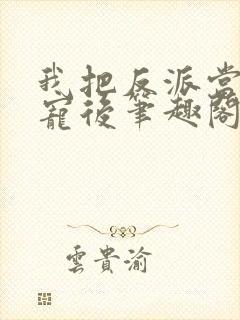 我把反派当
寵後筆趣閣
雲貴渝